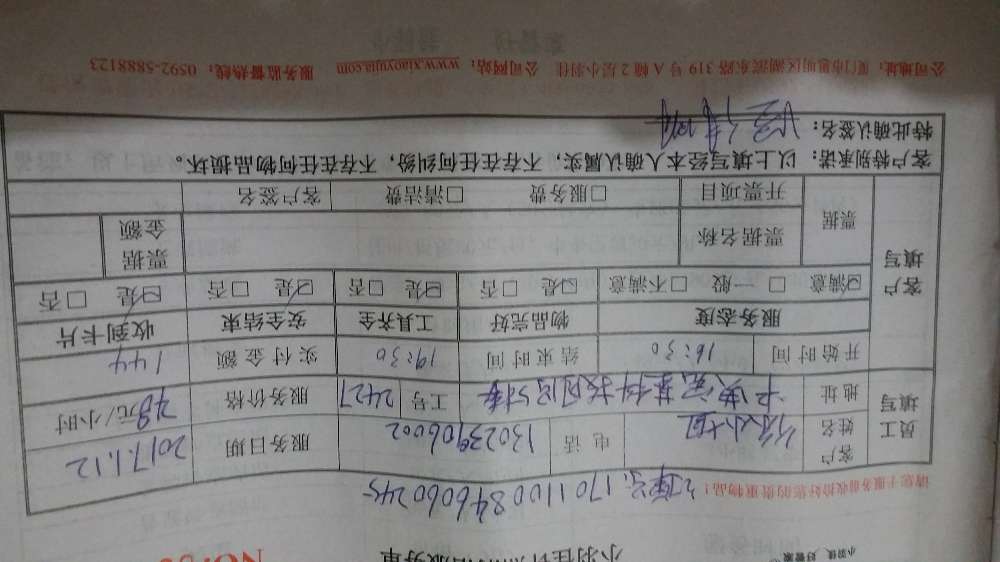 小羽佳 好管家
NO:
请您于服务前收拾好您的贵重物品！
单号：1701100846060245
员工填写 客户姓名 徐小姐 电话 13023906002 服务日期 2017.1.12
地址 工号 2427 服务价格 48元/小时
开始时间 16:30 结束时间 19:30 实付金额 144
客户填写 服务态度 物品完好 工具齐全 安全结束 收到卡片
☑满意 □一般 □不满意 ☑是 □否 ☑是 □否 ☑是 □否 ☑是 □否
票据 票据名称 票据金额
开票项目 □服务费 □清洁费 客户签名
客户特别承诺：以上填写经本人确认属实，不存在任何纠纷，不存在任何物品损坏。
特此确认签名：
公司地址：厦门市思明区湖滨东路 319 号 A 幢 2 层小羽佳 公司网站：www.xiaoyujia.com 服务监督热线：0592-5888123